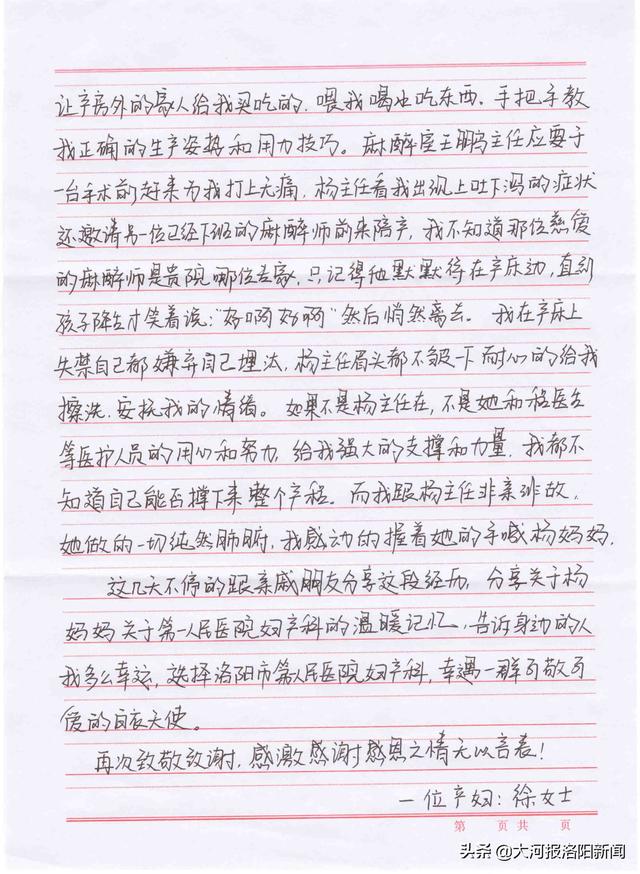 让产房外的家人给我买吃的，喂我喝水吃东西，手把手教
我正确的生产姿势和用力技巧。麻醉室王鹏主任应要于
一台手术前赶来为我打上无痛，杨主任看我出现上吐下泻的症状
还邀请另一位已经下班的麻醉师前来陪产，我不知道那位慈爱
的麻醉师是贵院哪位专家，只记得他默默待在产床边，直到
孩子降生才笑着说："好啊好啊"然后悄然离去。我在产床上
失禁自己都嫌弃自己埋汰，杨主任眉头都不皱一下耐心的给我
擦洗，安抚我的情绪。如果不是杨主任在，不是她和程医生
等医护人员的用心和努力，给我强大的支撑和力量，我都不
知道自己能否撑下来整个产程。而我跟杨主任非亲非故，
她做的一切纯然肺腑，我感动的握着她的手喊杨妈妈，
这几天不停的跟亲戚朋友分享这段经历，分享关于杨
妈妈关于第一人民医院妇产科的温暖记忆，告诉身边的人
我多么幸运，选择洛阳市第一人民医院妇产科，幸遇一群可敬可
爱的白衣天使。
再次致敬致谢，感激感谢感恩之情无以言表！
一位产妇：徐女士
第 页共 页
头条 @大河报洛阳新闻